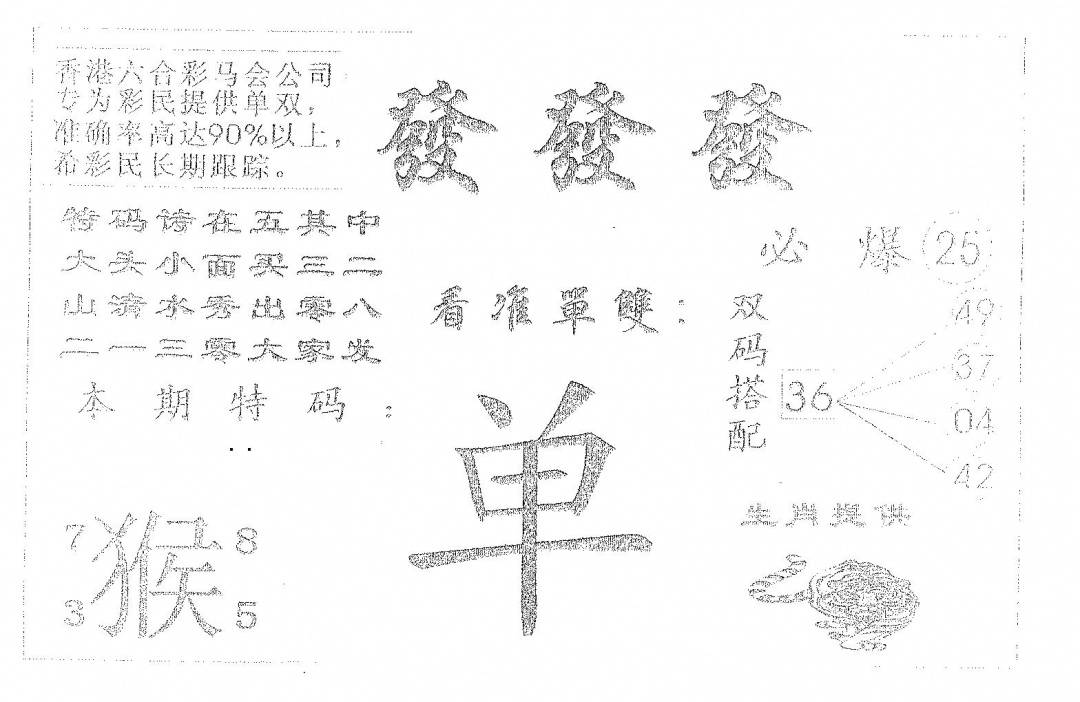 香港六合彩马会公司
专为彩民提供单双，
准确率高达90%以上，
希彩民长期跟踪。
發發發
特码诗在五其中
大头小面买三二
山清水秀出零八
二一三零大家发
本期特码：
看准單雙：
单
必爆25
双码搭配
36
49
37
04
42
7猴8
3 5
生肖提供